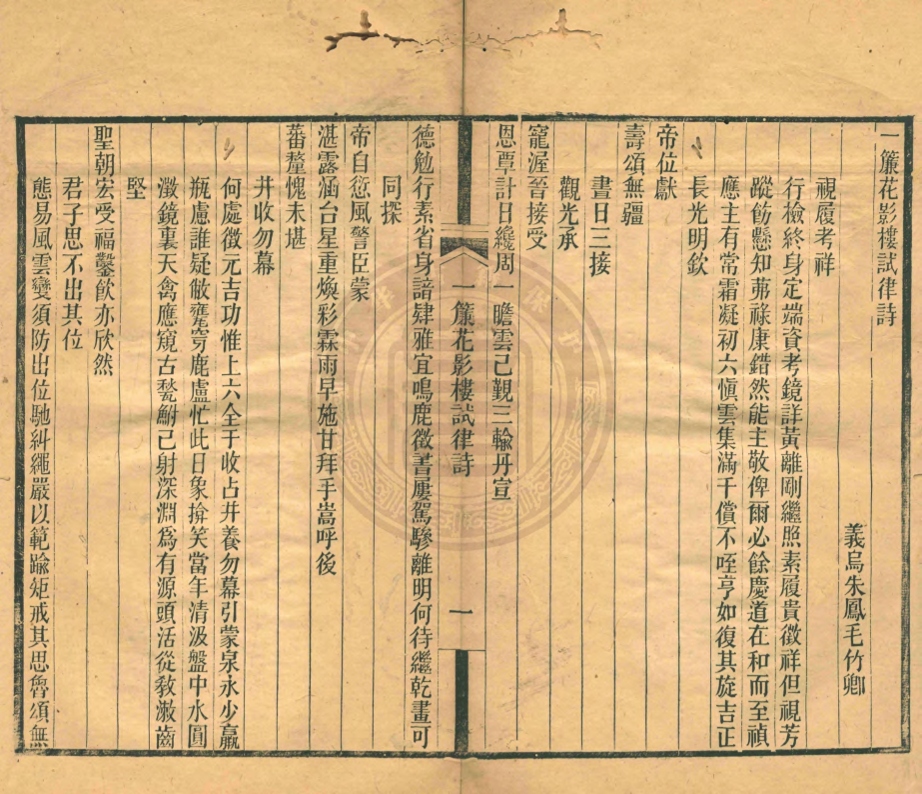 一簾花影樓試律詩
義烏朱鳳毛竹卿
視履考祥
行檢終身定端資考鏡詳黃離剛繼照素履貴徵祥但視芳
蹤飭懸知茀祿康錯然能主敬俾爾必餘慶道在和而至禎
應主有常霜凝初六愼雲集滿千償不咥亨如復其旋吉正
長光明欽
帝位獻
壽頌無疆
晝日三接
觀光承
寵渥晉接受
恩覃計日纔周一瞻雲已覲三輸丹宣
一簾花影樓試律詩
一
德勉行素省身諳肄雅宜鳴鹿徵書屢駕驂離明何待繼乾畫可
同探
帝自愆風警臣蒙
湛露涵台星重煥彩霖雨早施甘拜手嵩呼後
蕃釐愧未堪
井收勿幕
何處徵元吉功惟上六全于收占井養勿幕引蒙泉永少羸
瓶慮誰疑敝甕穿鹿盧忙此日象揜笑當年清汲盤中水圓
瀓鏡裏天禽應窺古甃鮒已射深淵爲有源頭活從教漱齒
堅
聖朝宏受福鑿飲亦欣然
君子思不出其位
態易風雲變須防出位馳糾繩嚴以範踰矩戒其思魯頌無